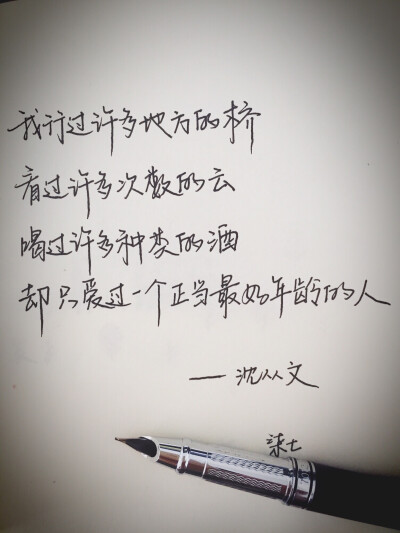 我行过许多地方的桥
看过许多次数的云
喝过许多种类的酒
却只爱过一个正当最好年龄的人
— 沈从文
柒七